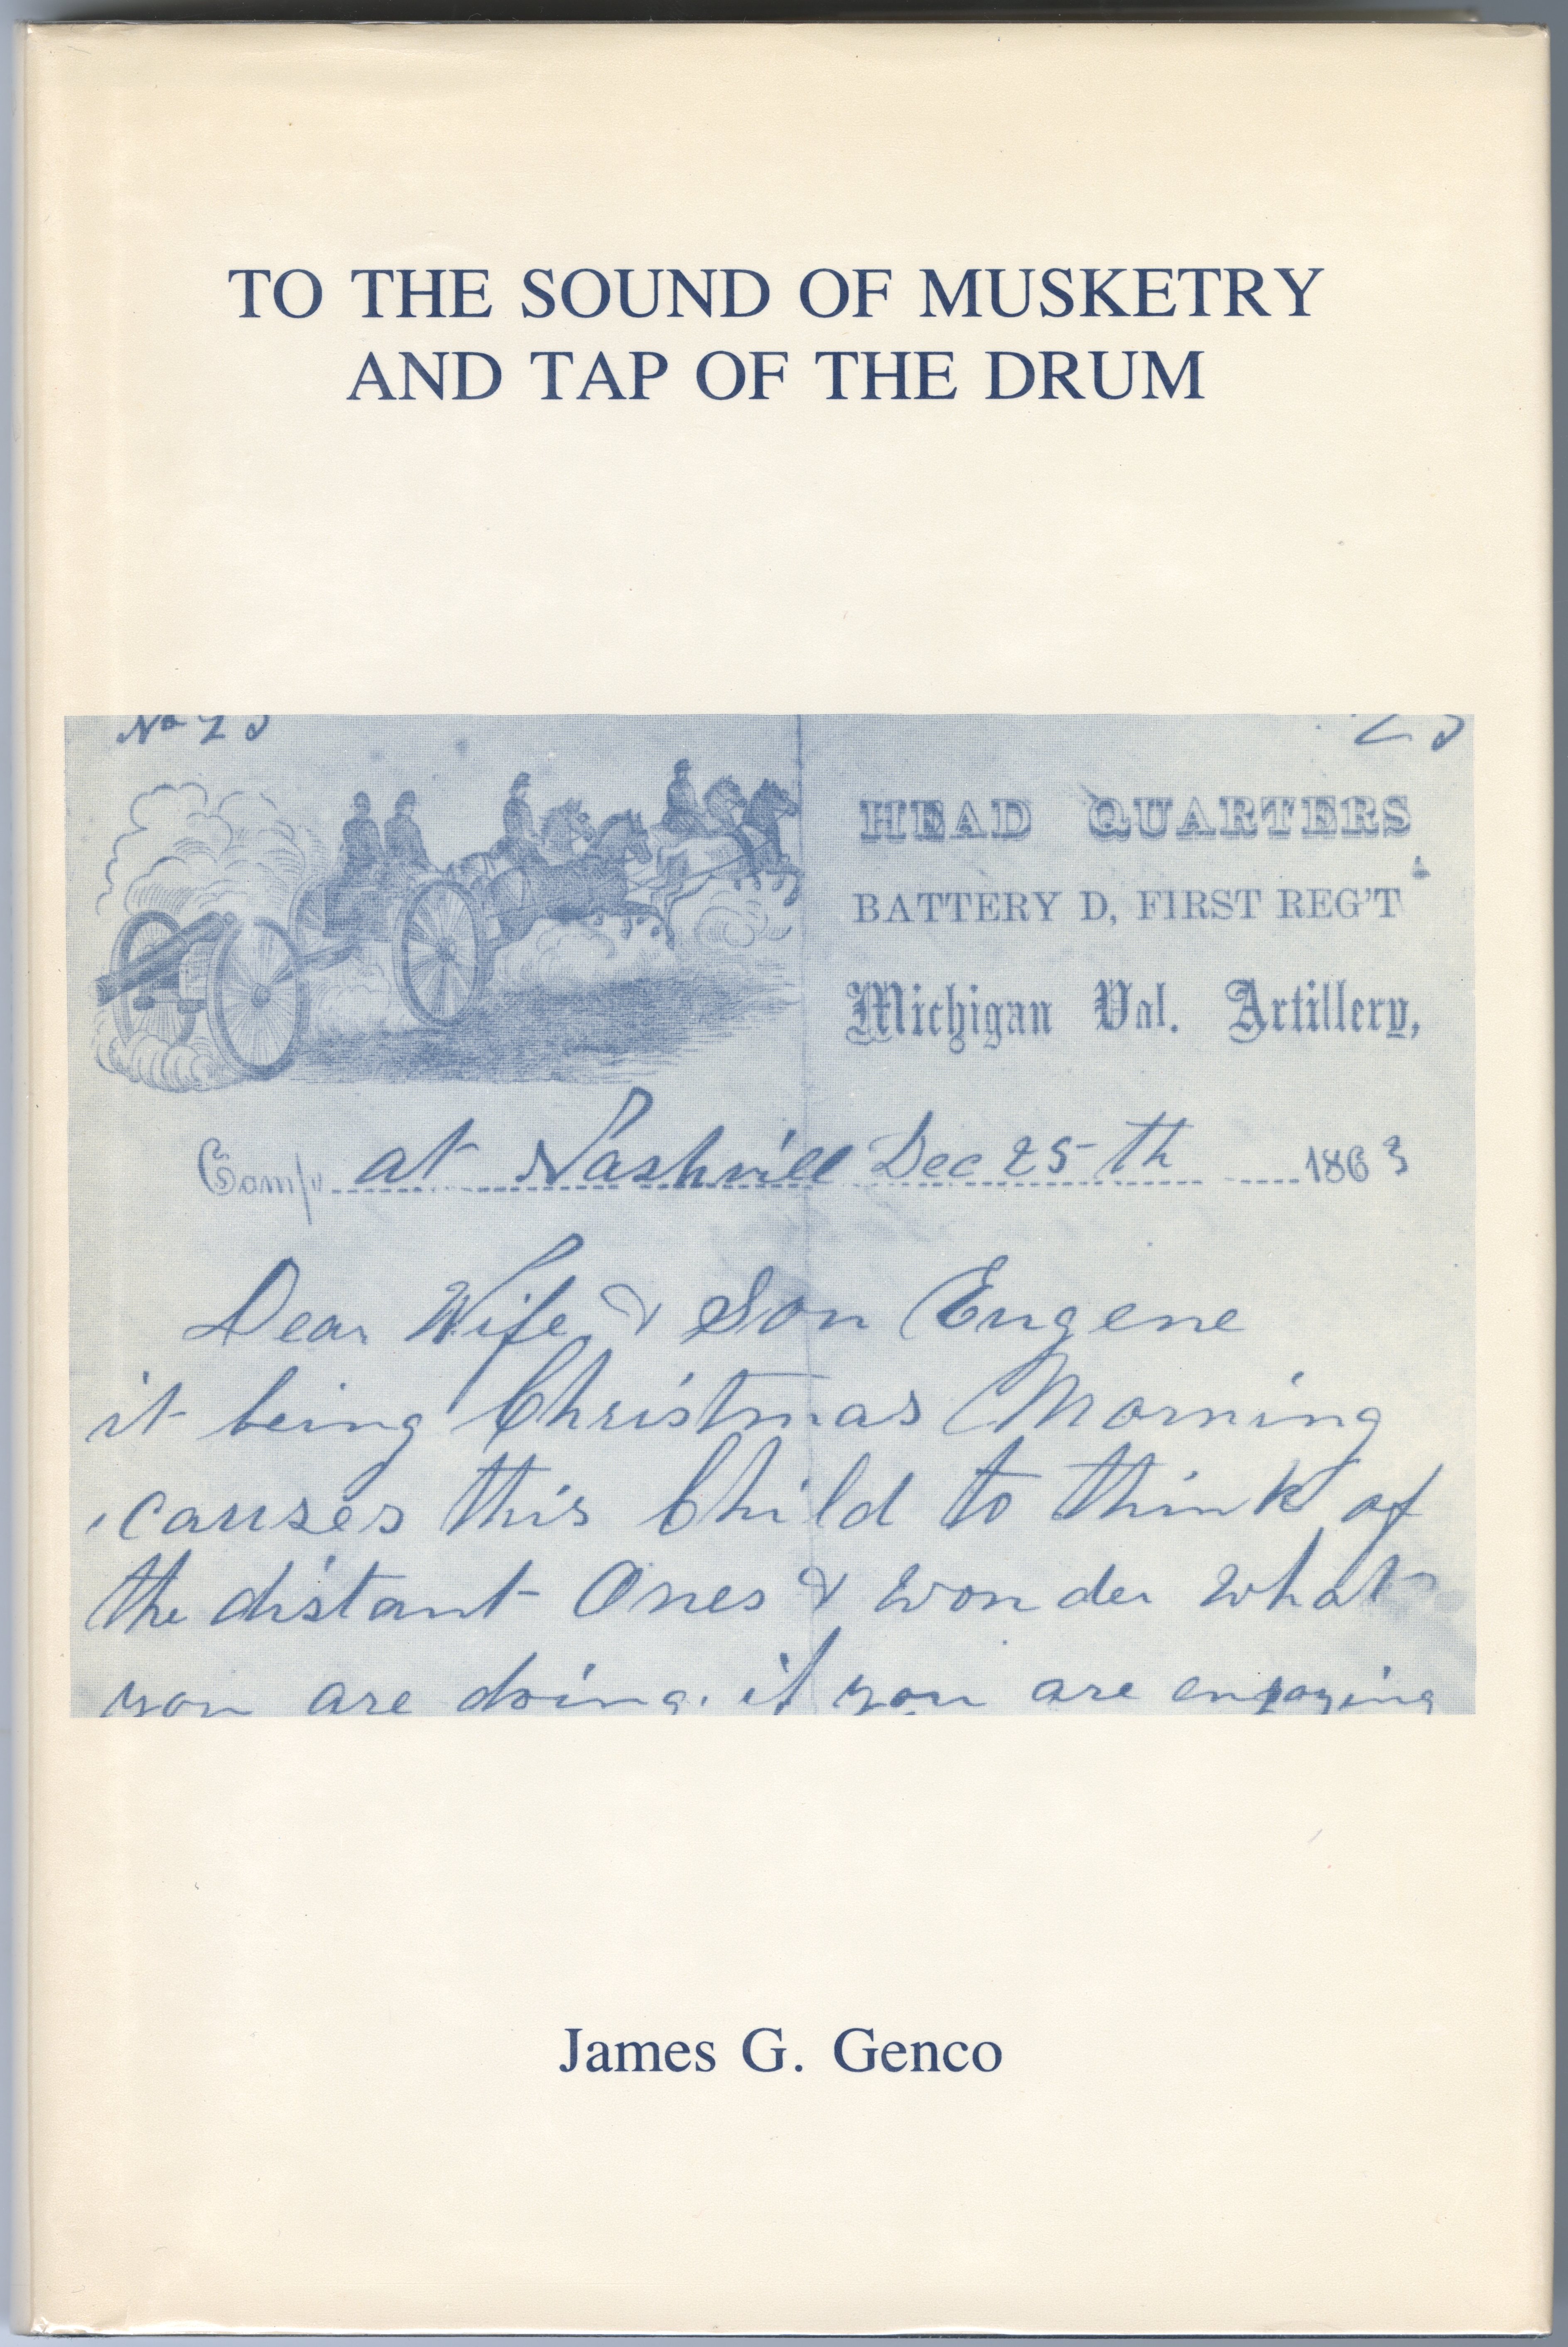 TO THE SOUND OF MUSKETRY
AND TAP OF THE DRUM
HEAD QUARTERS
BATTERY D, FIRST REG'T
Michigan Vol. Artillery,
Camp at Nashvill Dec 25th 1863
Dear Wife & Son Eugene
it being Christmas Morning
causes this Child to think of
the distant Ones & wonder what
you are doing. if you are enjoying
James G. Genco